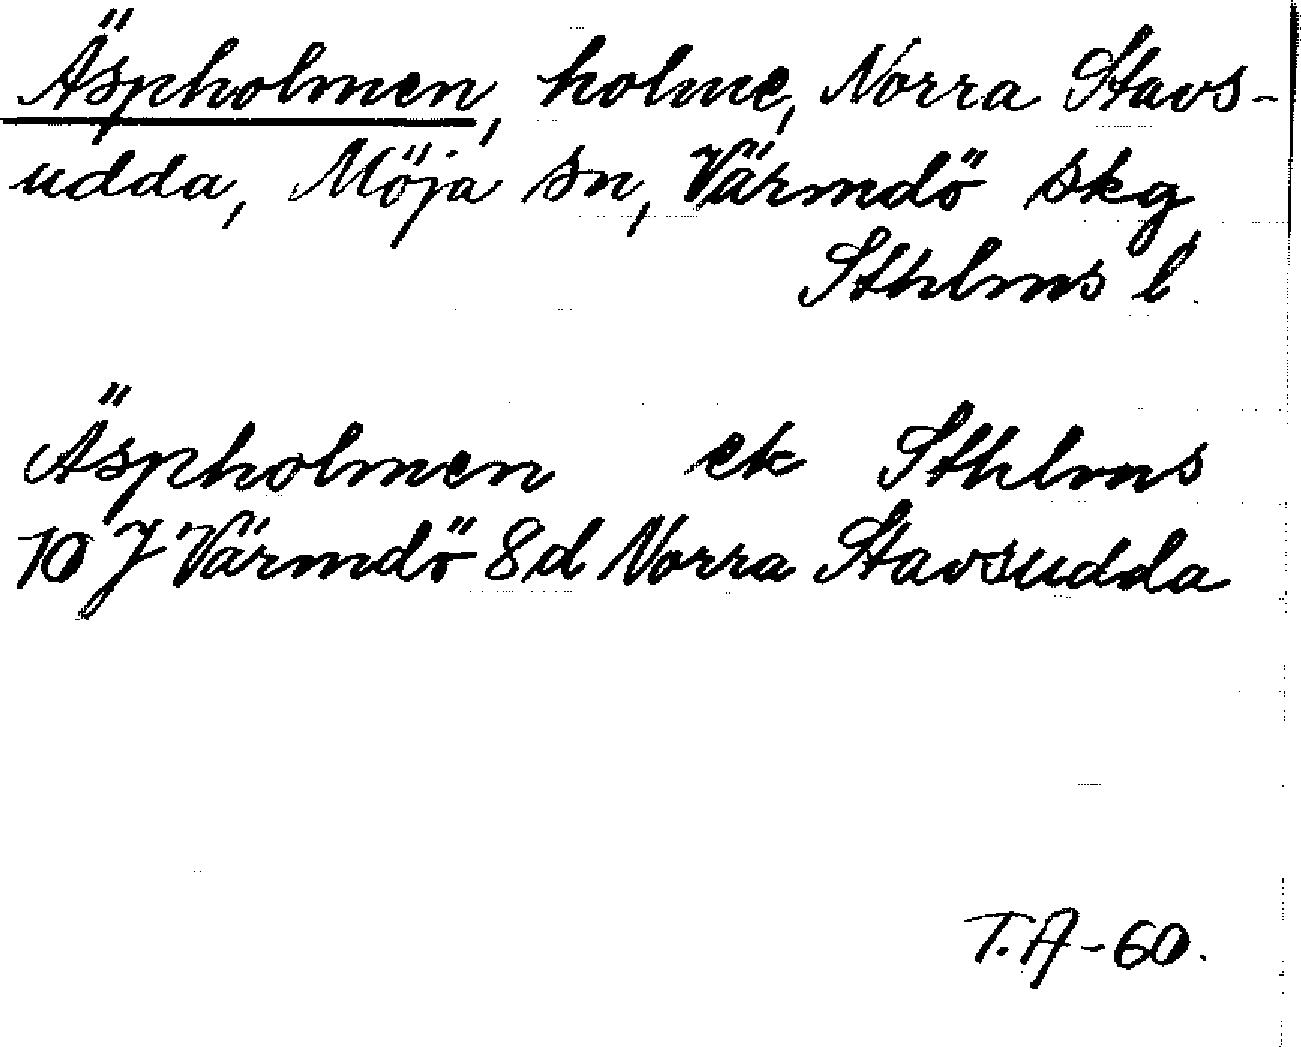 Äspholmen, holme, Norra Stavs-
udda, Möja sn, Värmdö skg
Sthlms l.
Äspholmen ek Sthlms
10 J Värmdö 8d Norra Stavsudda
T.A-60.